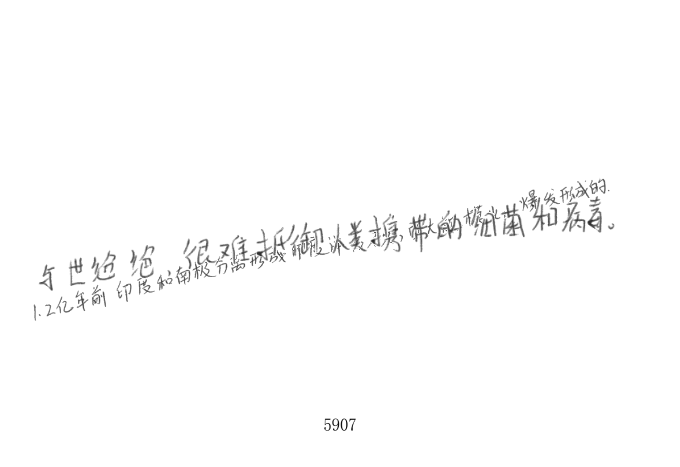 与世绝绝,很难抵御人类携带的细菌和病毒。
1.2亿年前 印度和南极分离形成 爆发形成的.
5907